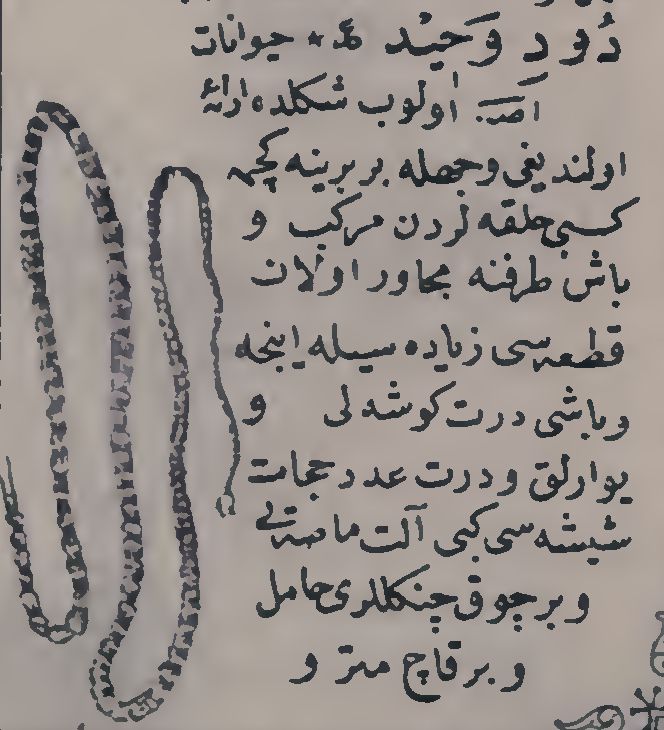 دُود وَحِيد * حيوانات
اولوب شكلده ارائهٔ
اولنديغی وجهله بربرينه كچمه
كبی حلقه لردن مركب و
باش طرفنه مجاور اولان
قطعه سی زياده سيله اينجه
و باشی درت كوشه لی و
يوارلق و درت عدد حجامت
شيشه سی كبی آلت ماصه لی
و بر چوق چنكللری حامل
و بر قاچ متر و